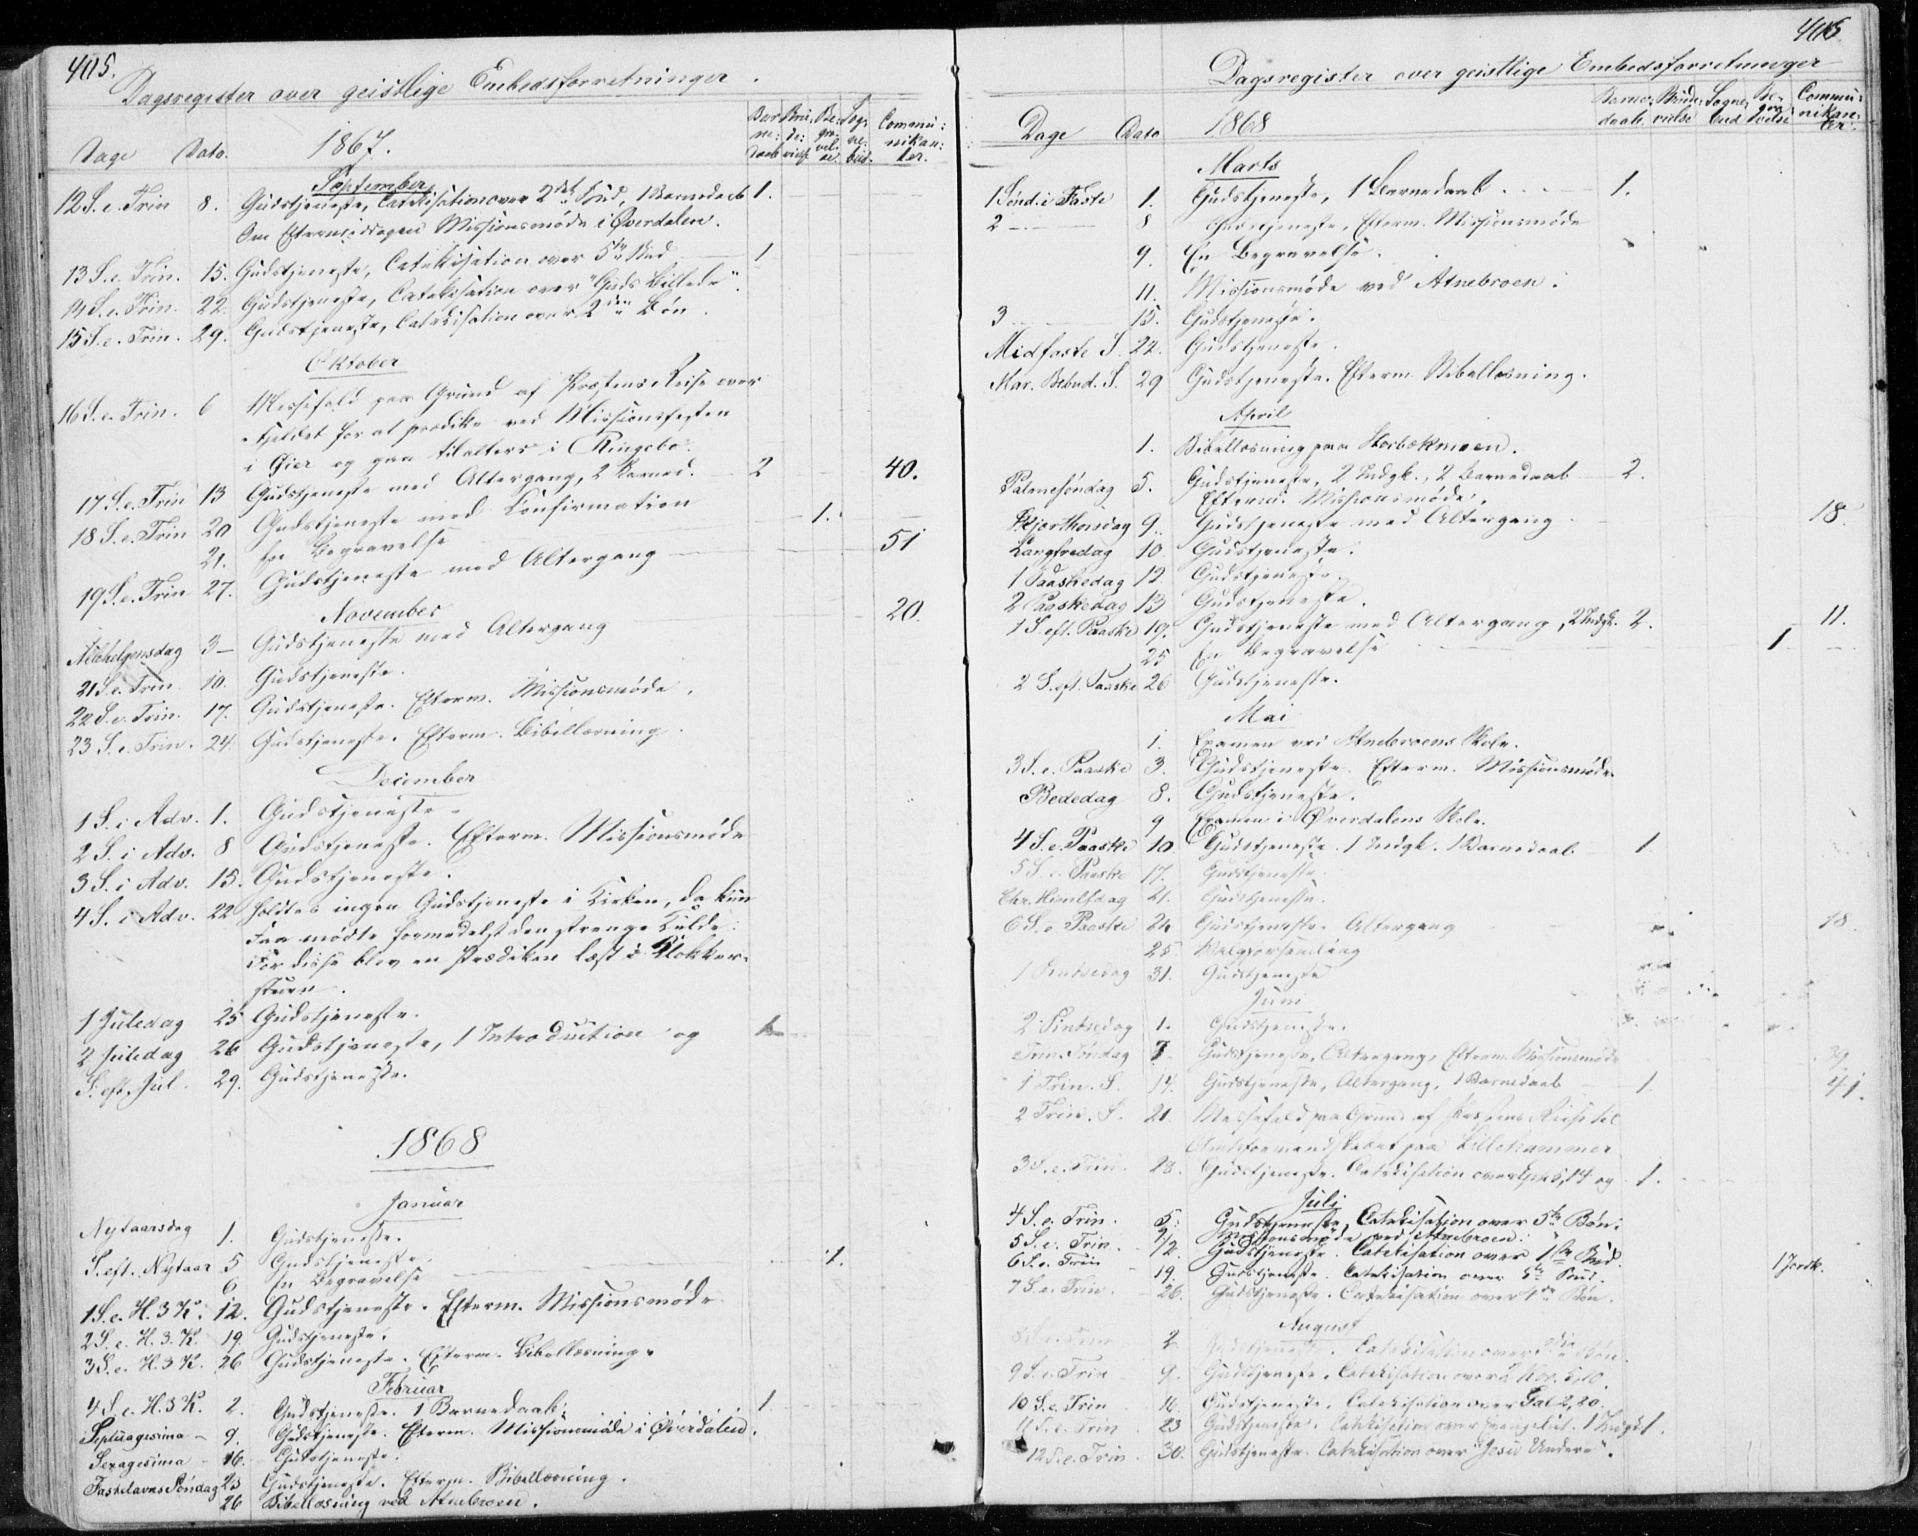 405.
Dagsregister over geistlige Embedsforretninger.
Dage Dato. 1867. Barnedaab Brudeviels. Begravelse. Sognebud. Communikanter.
September
12 S. e. Trin 8. Gudstjeneste, Catekisation over 2det Bud, 1 Barnedaab 1.
Om Eftermiddagen Missionsmøde i Øverdalen.
13 S. e. Trin. 15. Gudstjeneste, Catekisation over 5te Bud 1
14 S. e. Trin. 22. Gudstjeneste, Catekisation over "Guds Billede".
15 S. e. Trin. 29. Gudstjeneste, Catekisation over 2den Bøn.
Oktober
16 S. e. Trin. 6 Messefald paa Grund af Præstens Reise over
Fjeldet for at prædike ved Missionsfesten
i Øier og gaa tilalters i Ringebo.
17 S. e. Trin 13 Gudstjeneste med Altergang, 2 Barned. 2 40.
18 S. e. Trin 20 Gudstjeneste med Confirmation
21. En Begravelse 1.
19 S. e. Trin 27. Gudstjeneste med Altergang 51
November
Allehelgensdag 3 Gudstjeneste med Altergang 20.
21 S. e. Trin. 10. Gudstjeneste.
22 S. e. Trin. 17. Gudstjeneste. Efterm. Missionsmøde.
23 S. e. Trin. 24. Gudstjeneste. Efterm. Bibellæsning.
December
1 S. i Adv. 1. Gudstjeneste.
2 S. i Adv. 8 Gudstjeneste. Efterm. Missionsmøde
3 S. i Adv. 15. Gudstjeneste.
4 S. i Adv. 22 Holdtes ingen Gudstjeneste i Kirken, da kun
Faa mødte formedelst den strenge Kulde.
For disse blev en Prædiken læst i Klokker-
stuen.
1 Juledag 25 Gudstjeneste.
2 Juledag 26 Gudstjeneste, 1 Introduction og 1
S. eft. Jul. 29. Gudstjeneste.
1868
Januar
Nytaarsdag 1. Gudstjeneste.
S. eft. Nytaar 5 Gudstjeneste.
6 En Begravelse 1.
1 S. e. H. 3 K. 12. Gudstjeneste. Efterm. Missionsmøde
2 S. e. H. 3. K. 19 Gudstjeneste.
3 S. e. H. 3 K. 26 Gudstjeneste. Efterm. Bibellæsning.
Februar
4 S. e. H. 3 K. 2. Gudstjeneste. 1 Barnedaab. 1.
Septuagesima 9. Gudstjeneste. Efterm. Missionsmøde i Øverdalen.
Sexagesima 16. Gudstjeneste.
Fastelavns Søndag 23 Gudstjeneste. Efterm. Bibellæsning.
26 Bibellæsning ved Atnebroen.
405.
Dagsregister over geistlige Embedsforretninger
Dage Dato 1868 Barnedaab. Brudevielse Sognebud Begravelse Communikanter.
Marts
1 Sønd. i Faste 1. Gudstjeneste, 1 Barnedaab 1.
2 8 Gudstjeneste, Efterm. Missionsmøde
9. En Begravelse.
11. Missionsmøde ved Atnebroen.
3 15. Gudstjeneste.
Midfaste S. 22. Gudstjeneste.
Mar. Bebud. S. 29 Gudstjeneste. Efterm. Bibellæsning.
April
1. Bibellæsning paa Storbækmoen.
Palmesøndag 5. Gudstjeneste, 2 Indgk., 2 Barnedaab 2.
Efterm. Missionsmøde.
Skjærthorsdag 9. Gudstjeneste med Altergang 18.
Langfredag 10 Gudstjeneste.
1 Paaskedag 12. Gudstjeneste.
2 Paaskedag 13 Gudstjeneste.
1 S. eft. Paaske 19. Gudstjeneste med Altergang, 2 Indgk. 2. 11.
25 En Begravelse 1
2 S. eft. Paaske 26 Gudstjeneste.
Mai
1. Examen ved Atnebroens Skole.
3 S. e. Paaske 3. Gudstjeneste. Efterm. Missionsmøde
Bededag 8. Gudstjeneste.
9 Examen i Øverdalens Skole.
4 S. e. Paaske 10. Gudstjeneste. 1 Indgk. 1 Barnedaab. 1
5 S. e. Paaske 17. Gudstjeneste
Chr. Himlfdag 21. Gudstjeneste.
6 S. e. Paaske 24 Gudstjeneste. Altergang 18.
25 Valgforsamling
1 Pintsedag 31. Gudstjeneste
Juni
2 Pintsedag 1. Gudstjeneste.
Trin. Søndag 7. Gudstjeneste, Altergang, Efterm. Missionsmøde
1 Trin. S. 14. Gudstjeneste, Altergang, 1 Barnedaab 1. 41.
2 Trin. S. 21 Messefald paa Grund af Præstens Reise til
Amtsformandskabet paa Lillehammer
3 S. e. Trin. 28. Gudstjeneste. Catekisation over Ephes. 5,14 og 1.
Juli
4 S. e. Trin. 5. Gudstjeneste, Catekisation over 5te Bøn.
Missionsmøde ved Atnebroen.
5 S. e. Trin. 12. Gudstjeneste. Catekisation over 1ste Bud.
6 S. e. Trin 19. Gudstjeneste. Catekisation over 5te Bud. 1 Jordk.
7 S. e. Trin. 26. Gudstjeneste. Catekisation over 4de Bøn.
August
8 S. e. Trin 2. Gudstjeneste. Catekisation over Bøn.
9 S. e. Trin 9. Gudstjeneste. Catekisation over 2 Kor. 5,10.
10 S. e. Trin 16. Gudstjeneste. Catekisation over Gal 2,20.
11 S. e. Trin 23 Gudstjeneste. Catekisation over Evangeliet. 1 Indgk.
12 S. e. Trin. 30. Gudstjeneste. Catekisation over "Jesu Undere".